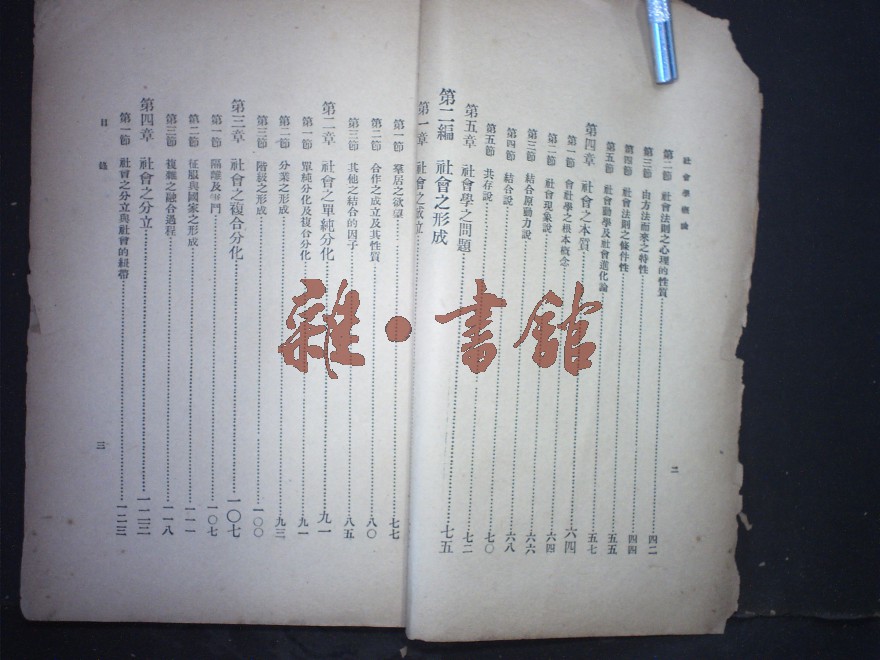 社會學概論
二
第二節 社會法則之心理的性質 四二
第三節 由方法而來之特性 四四
第四節 社會法則之條件性 五五
第五節 社會動學及社會進化論 五七
第四章 社會之本質 六四
第一節 會社學之根本概念 六四
第二節 社會現象說 六六
第三節 結合原動力說 六八
第四節 結合說 七〇
第五節 共存說 七二
第五章 社會學之問題
第二編 社會之形成 七五
第一章 社會之成立
第一節 羣居之欲望 七七
第二節 合作之成立及其性質 八〇
第三節 其他之結合的因子 八五
第二章 社會之單純分化 九一
第一節 單純分化及複合分化 九一
第二節 分業之形成 九三
第三節 階級之形成 一〇〇
第三章 社會之複合分化 一〇七
第一節 隔離及 一〇七
第二節 征服與國家之形成 一一一
第三節 複雜之融合過程 一一八
第四章 社會之分立 一二三
第一節 社會之分立與社會的紐帶 一二三
目錄
三
雜·書館